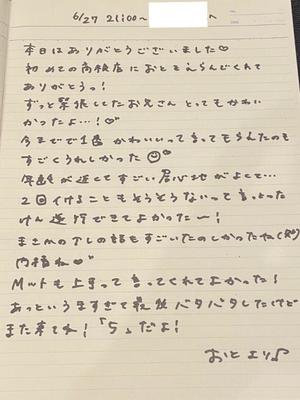 6/27 21:00〜　　　　へ
本日はありがとうございました♡
初めての高級店におとをえらんでくれて
ありがとうっ!
ずっと緊張してたお兄さん とってもかわい
かったよ…!♡
今までで1番 かわいいって言ってもらえたのも
すごくうれしかった☺♡
年齢が近くてすごい居心地がよくて…
2回イけることもそうそうないって言ってた
けん 達成できてよかったー!
まさかの アレの話もすごいたのしかったね(笑)
内緒ね♡
Mットも上手って言ってくれてよかった!
あっというますぎて最後バタバタしたけど
また来てね!「5」だよ!
おと より♪